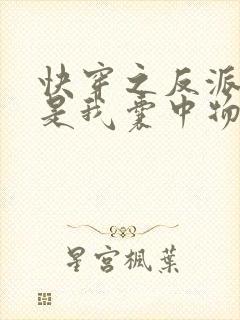 快穿之反派
是我囊中物
星宫楓葉